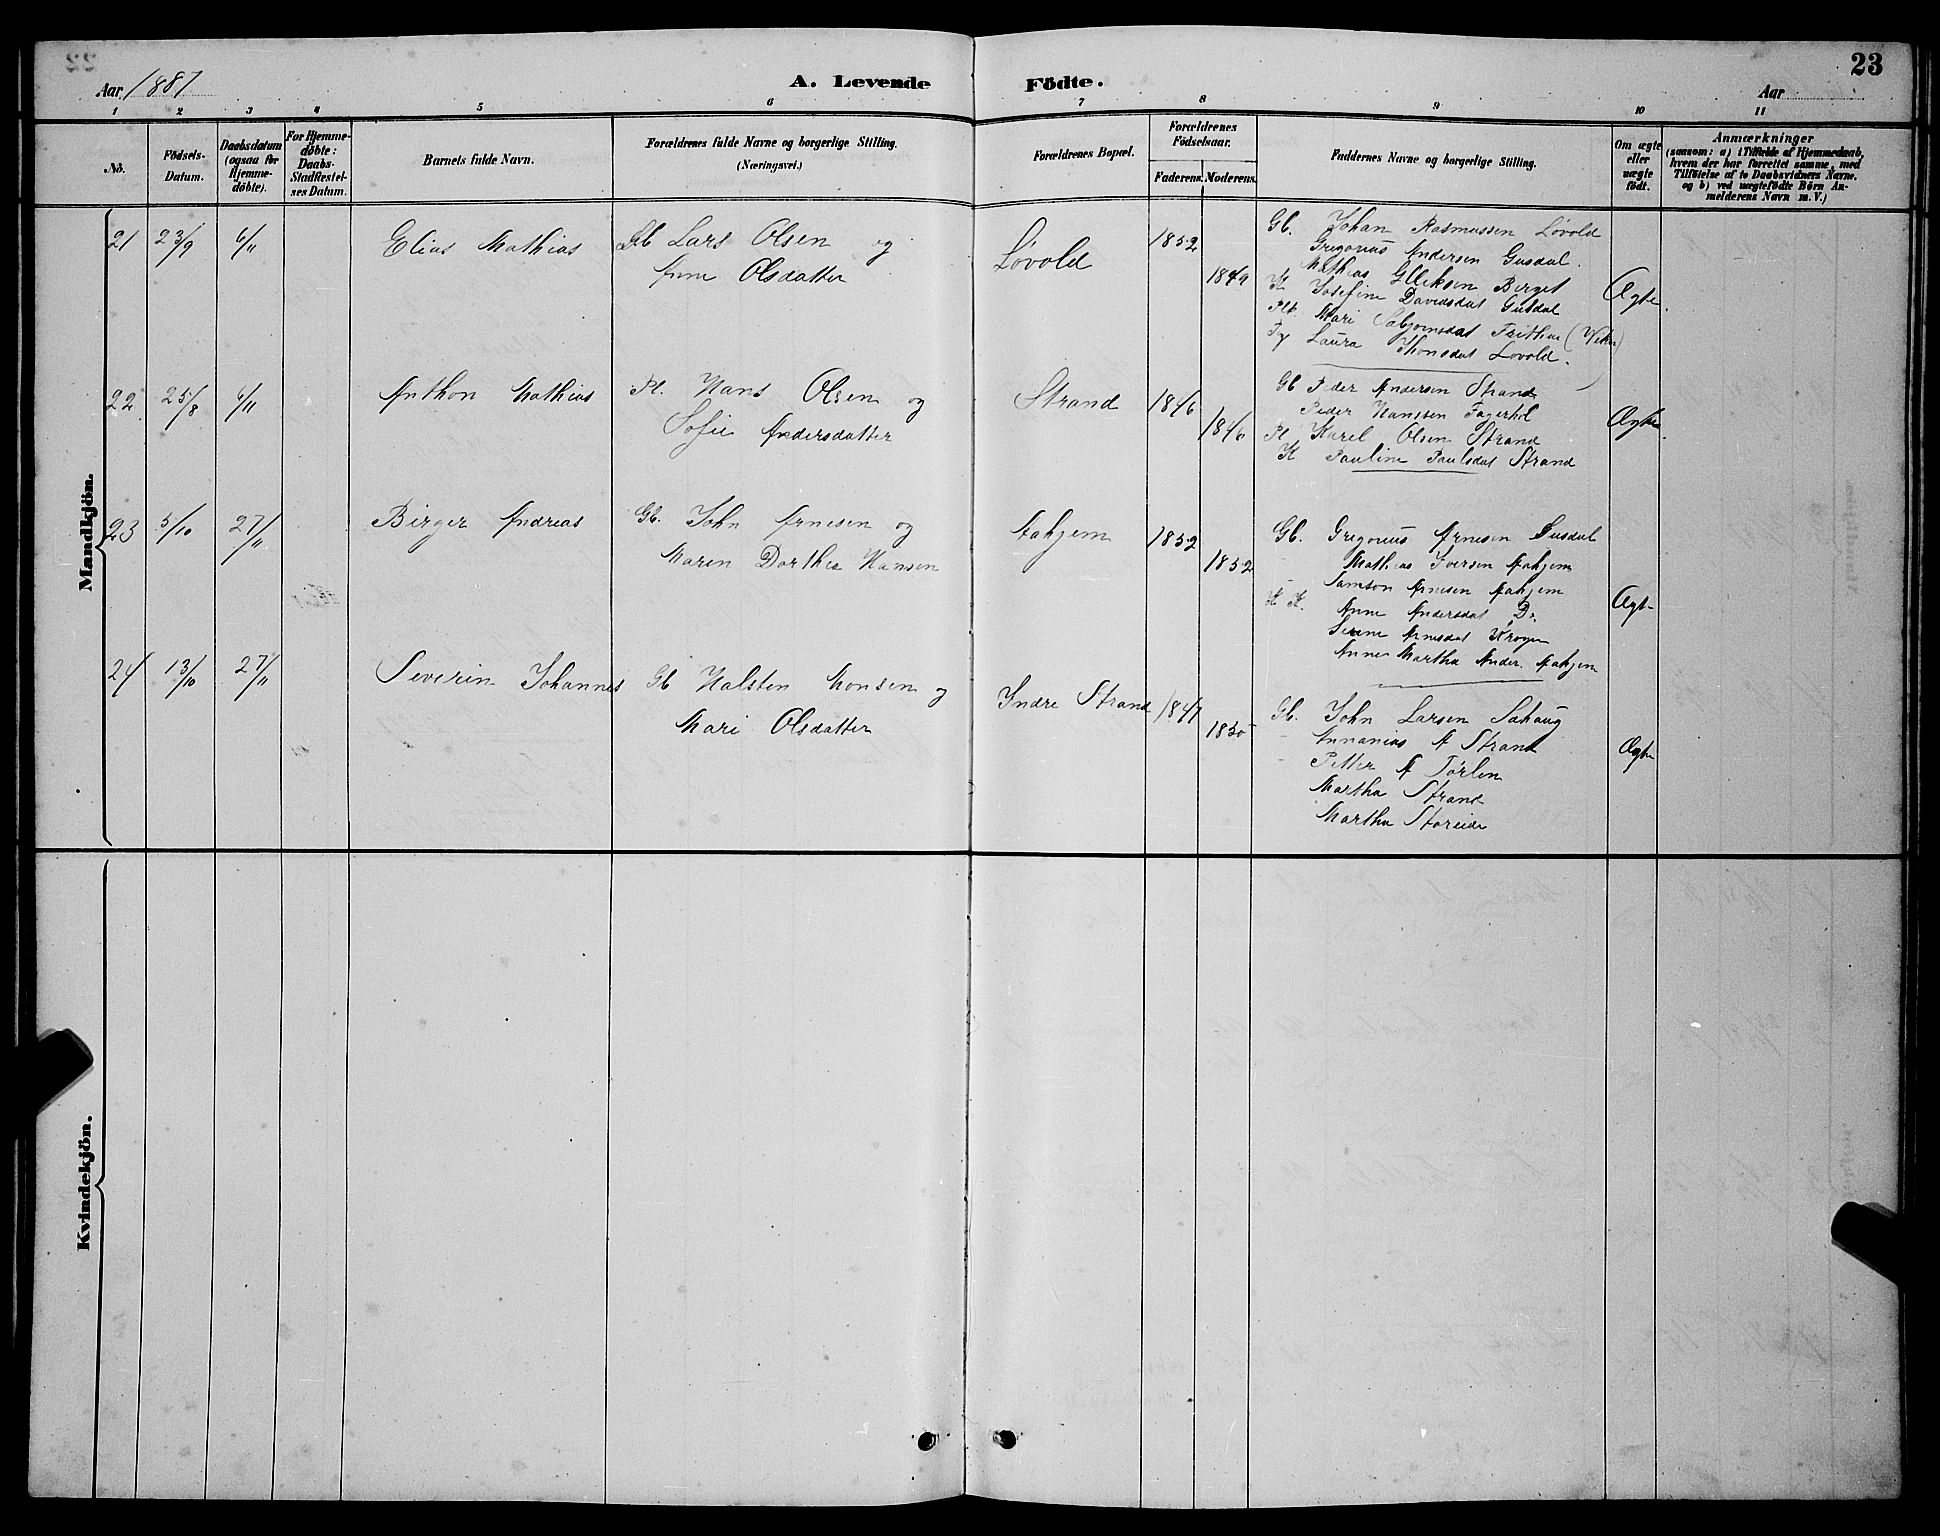 23
Aar 1887
A. Levende Födte.
Aar
1 2 3 4 5 6 7 8 9 10 11
No.
Födsels-Datum.
Daabsdatum (ogsaa for Hjemme-döbte).
For Hjemme-döbte: Daabs-Stadfestel-ses Datum.
Barnets fulde Navn.
Forældrenes fulde Navne og borgerlige Stilling.
(Næringsvei.)
Forældrenes Bopæl.
Forældrenes Födselsaar.
Faderens. Moderens.
Faddernes Navne og borgerlige Stilling.
Om ægte eller uægte födt.
Anmærkninger
(saasom: a) i Tilfælde af Hjemmedaab,
hvem der har forrettet samme, med
Tilföielse af to Daabsvidners Navne.
og b) ved uægtefödte Börn An-
melderens Navn m. V.)
Mandkjön.
21 23/9 6/11 Elias Mathias Gb Lars Olsen og
Anne Olsdatter
Løvold 1852
1849
Gb. Johan Rasmussen Løvold
Gregorius Andersen Gusdal.
Mathias Birget
K Josefine Davidsdat Gusdal
Mari
Laura Løvold.
Ægte.
22 25/8 6/11 Anthon Mathias Pl. Hans Olsen og
Sofie Andersdatter
Strand 1846
1846
Gb Peder Andersen Strand
Peder Hanssen
Pl Karel Olsen Strand
K Pauline Paulsdat Strand
Ægte.
23 5/10 27/11 Birger Andreas Gb. John Arnesen og
Maren Dorthea Hansen
Aahjem 1852
1852
Gb. Gregorius Arnesen Gusdal
Mathias Iversen Aahjem
Samson Arnesen Aahjem
K K. Anne Andersdat Do.
Arnesdat
Anne Martha Ander. Aahjem
Ægt-
24 13/10 27/11 Severin Johannes Gb Halsten Monsen og
Mari Olsdatter
Indre Strand 1847
1850
Gb. John Larsen
Annanias A Strand
Petter A
Martha Strand
Martha Støreide
Ægte
Kvindekjön.